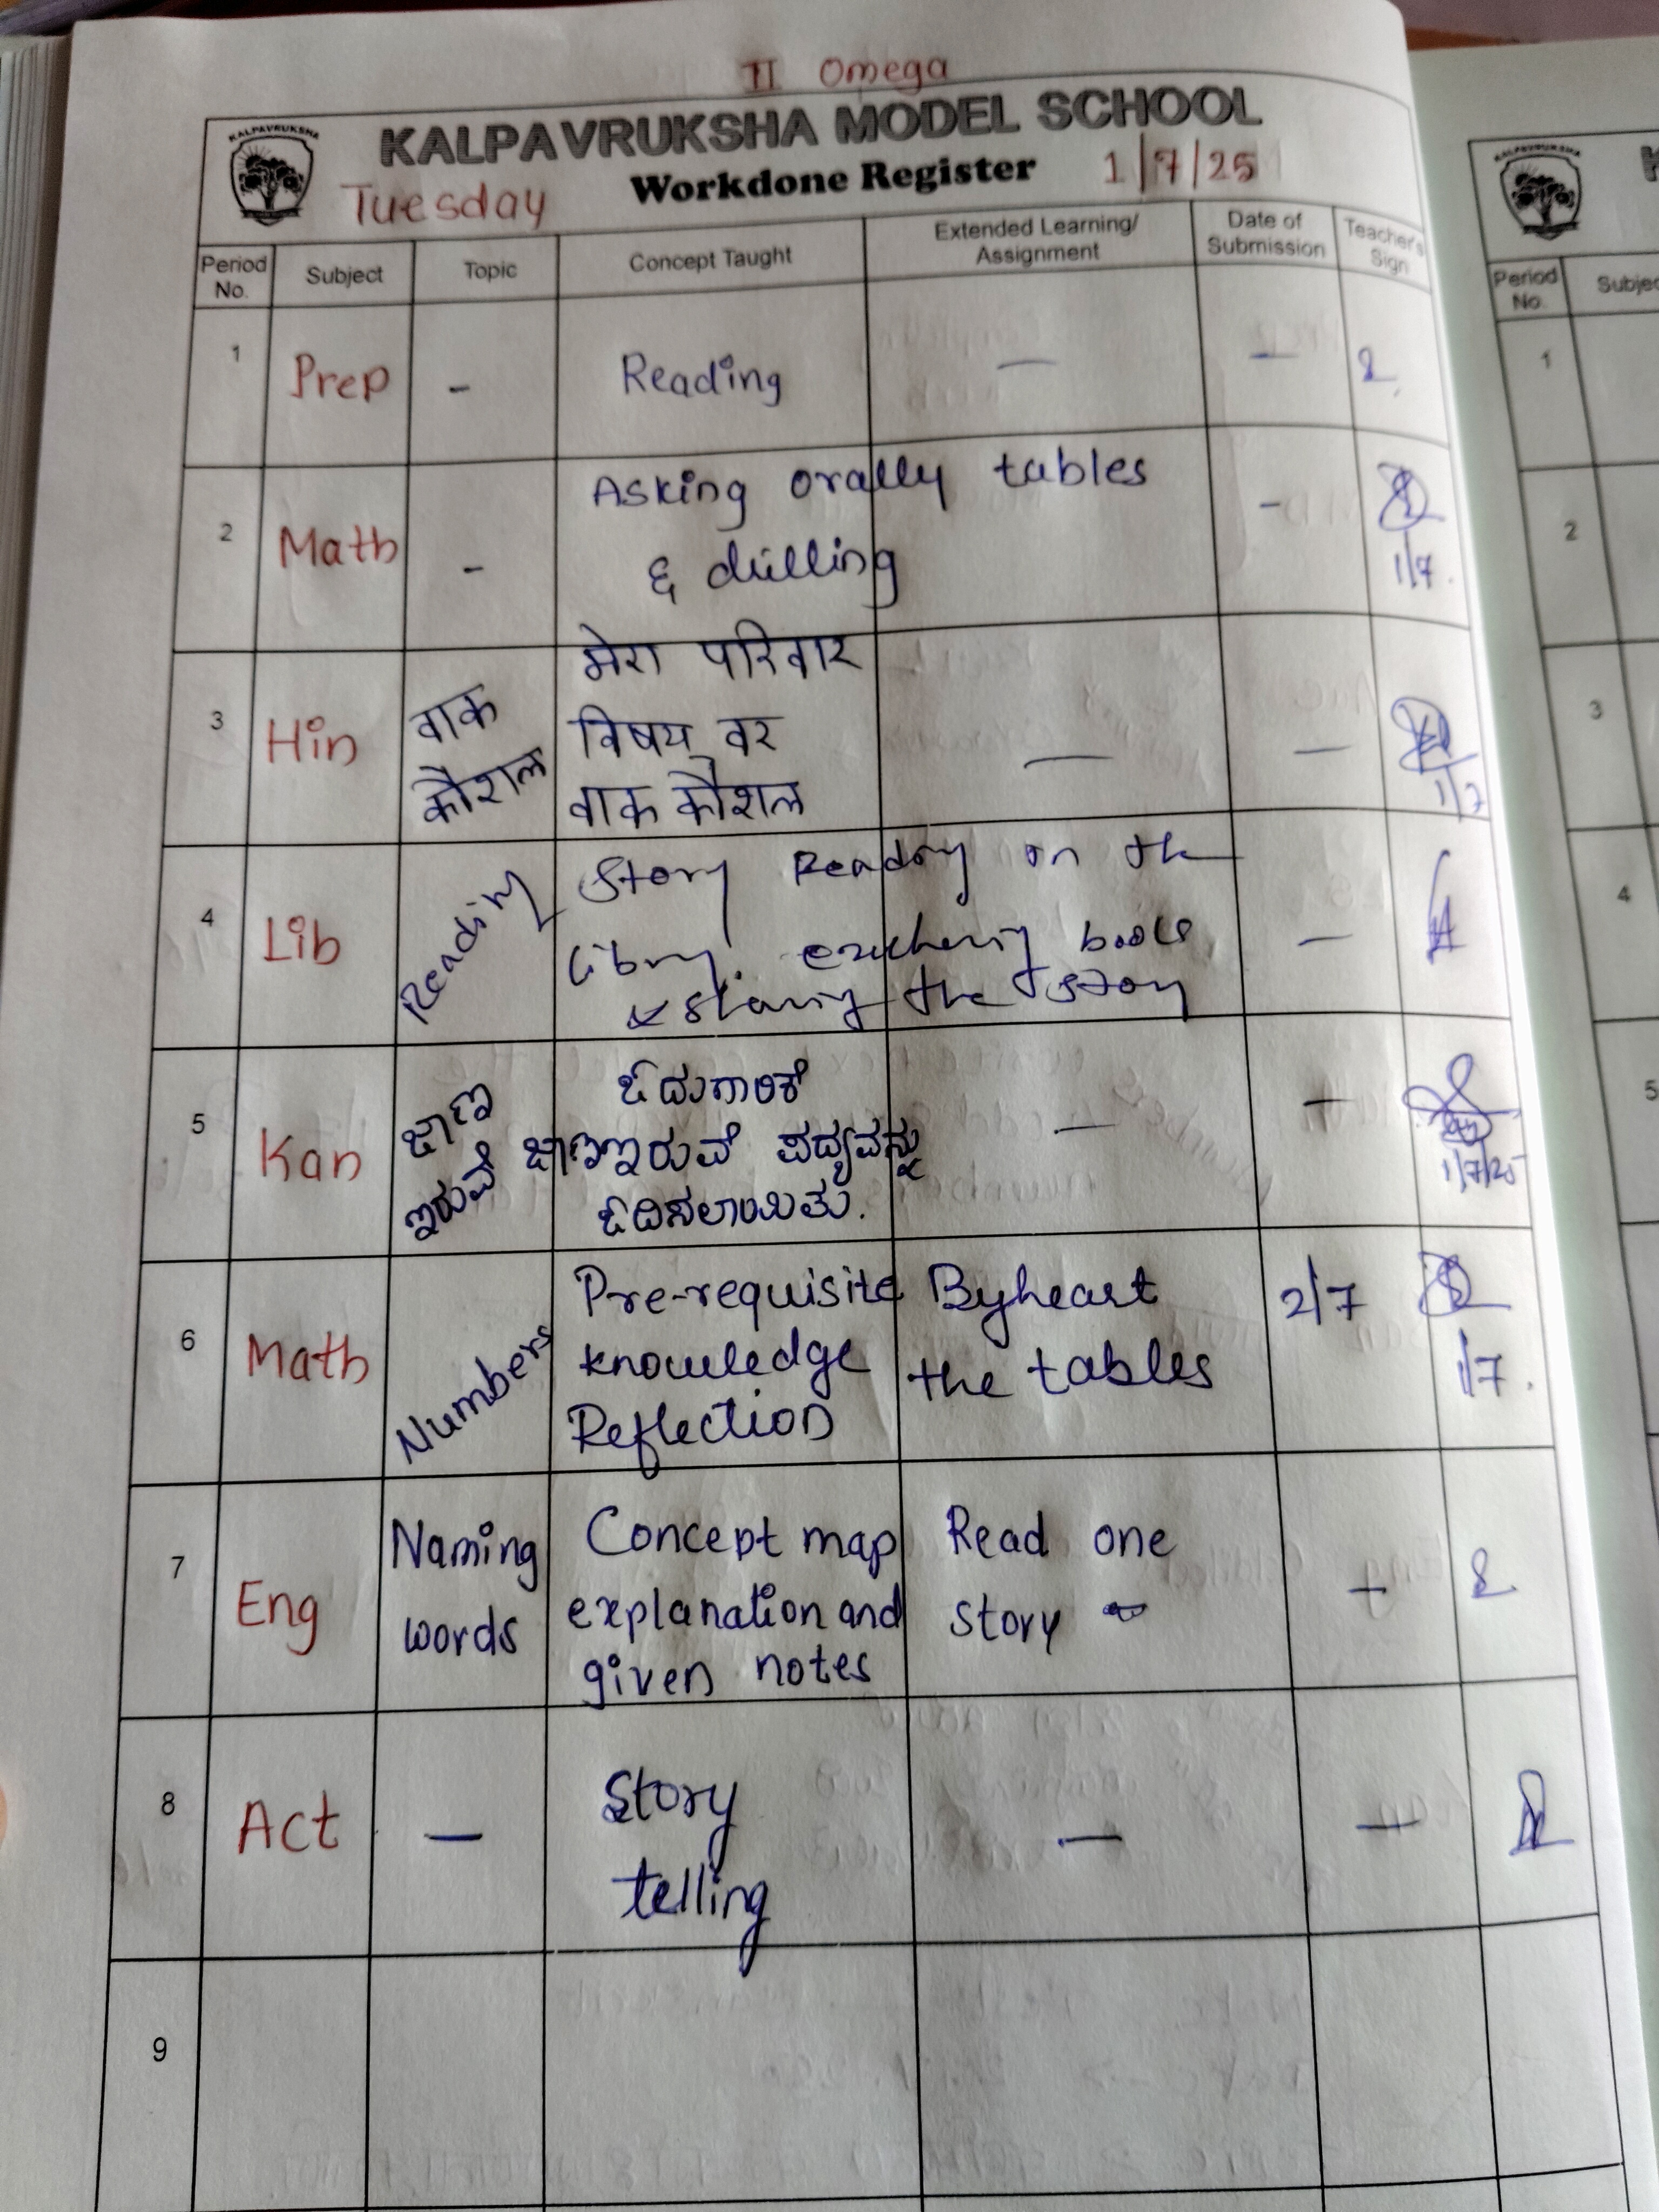 II Omega
KALPAVRUKSHA
KALPAVRUKSHA MODEL SCHOOL
Tuesday Workdone Register 1/7/25
Period No. Subject Topic Concept Taught Extended Learning/ Assignment Date of Submission Teacher's Sign
1 Prep - Reading — —
2 Math - Asking orally tables -
& drilling
1/7.
3 Hin वाक कौशल मेरा परिवार — —
विषय वर
वाक कौशल
1/7
4 Lib Reading Story Reading on the —
books
& sharing the story
5 Kan ಜಾಣ ಇರುವೆ ಓದುಗಾರಿಕೆ — —
ಜಾಣಇರುವೆ ಪದ್ಯವನ್ನು
ಓದಿಸಲಾಯಿತು.
1/7/25
6 Math Numbers Pre-requisite Byheart 2/7
knowledge the tables
Reflection
1/7.
7 Eng Naming words Concept map Read one —
explanation and story
given notes
8 Act — Story — —
telling
9
KALPAVRUKSHA
Period No.
1
2
3
4
5